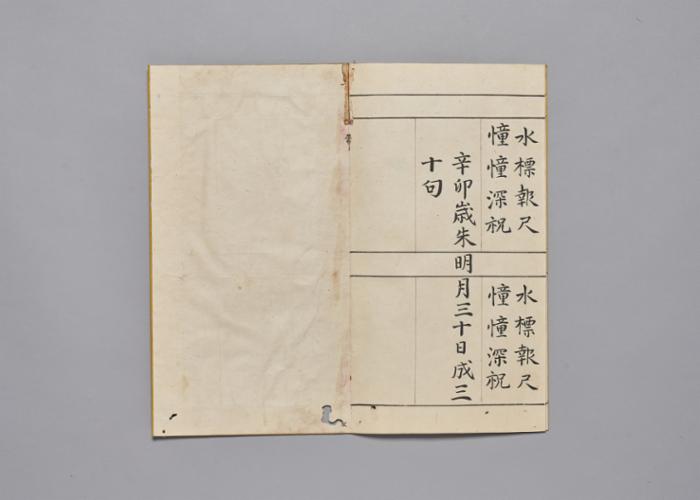 水標報尺
憧憧深祝
水標報尺
憧憧深祝
辛卯歲朱明月三十日成三
十句